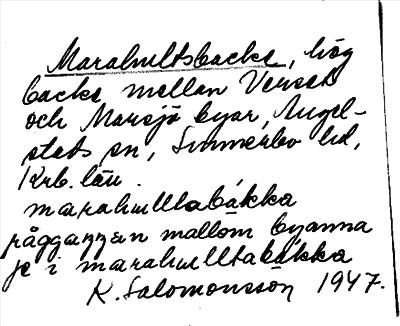 Marahultsbacke, hög
backe mellan Versek
och Marsjö byar, Angel-
stads sn, Sunnerbo hd,
Krb. län.
marahulltabákka
råggaŋŋen mallôm byanna
je i marahulltabákka
K. Salomonsson 1947.